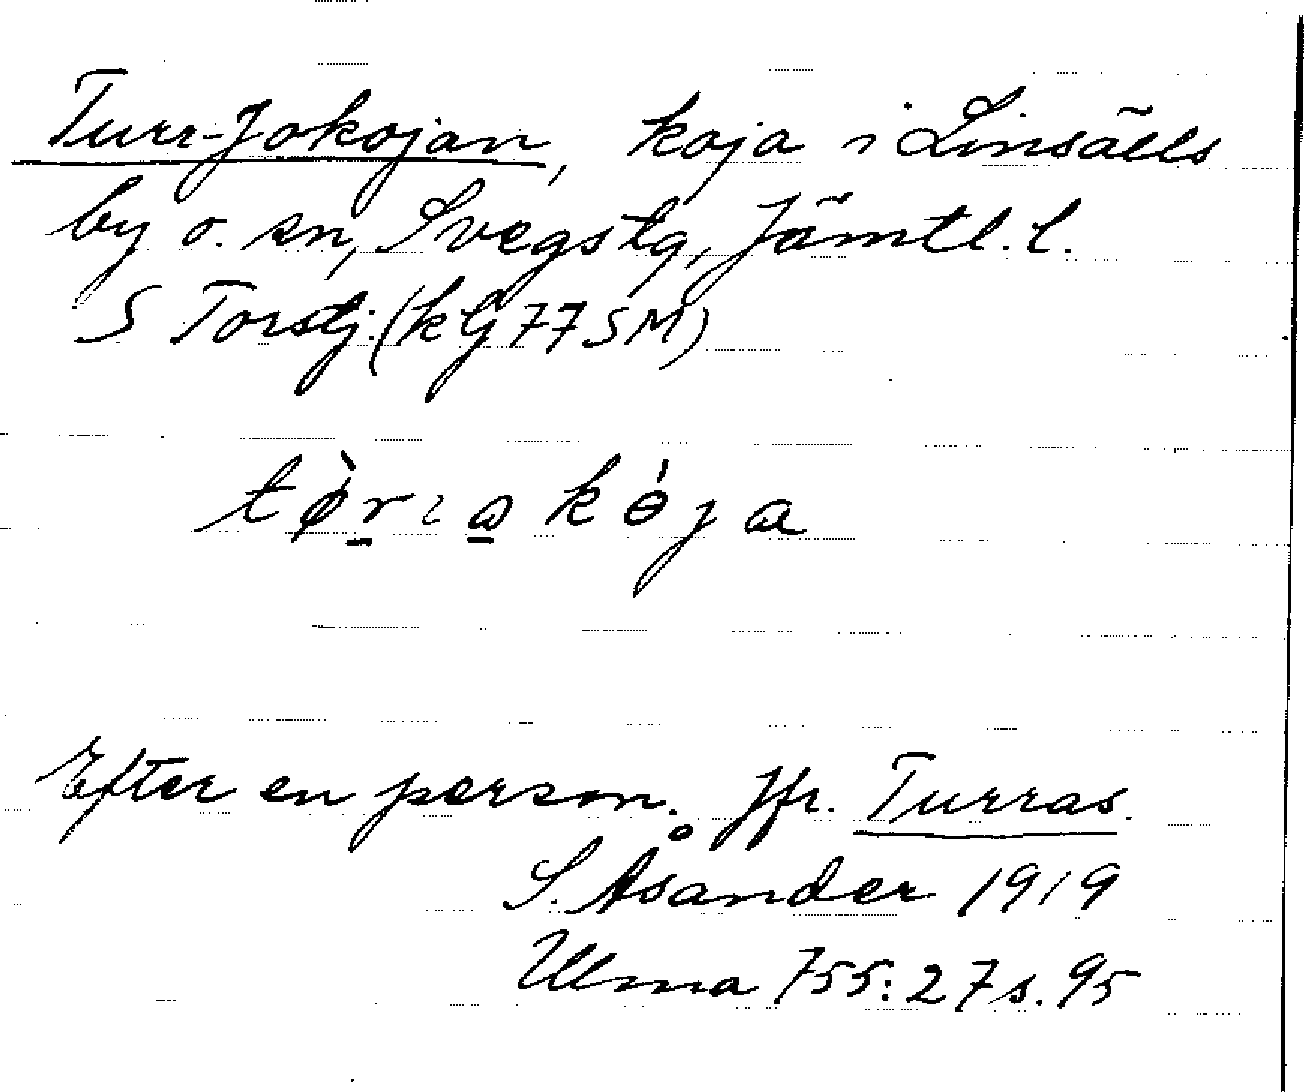 Turr-Jokojan, koja i Linsälls
by o. sn, Svegs tg, Jämtl. l.
S Torstj. (kbl 77 SM)
Efter en person. Jfr. Turras.
S. Åsander 1919
Ulma 755:27 s. 95